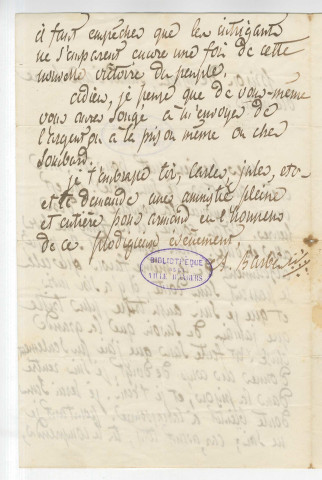 il faut empêcher que les intrigants
ne s'emparent encore une fois de cette
nouvelle victoire du peuple.
adieu, je pense que de vous-même
vous aurez songé à lui envoyer de
l'argent ou à la prison même ou chez
Loubard.
je t'embrasse toi, Carles, jules, etc.
et te demande une amnistie pleine
et entière pour armand en l'honneur
de ce prodigieux événement.
A. Barbès
BIBLIOTHÈQUE
VILLE D'ANGERS